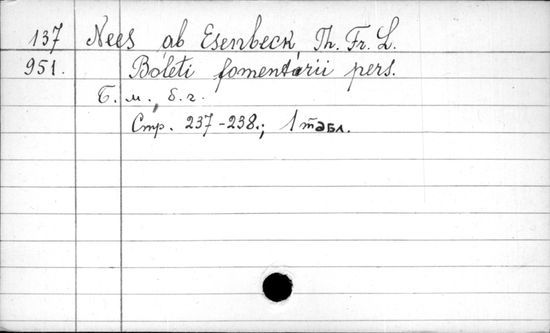 137 Nees ab Esenbeck, Th. Fr. L.
951. Boleti fomentarii pers.
Б. м., б. г.
Стр. 237-238.; 1 табл.